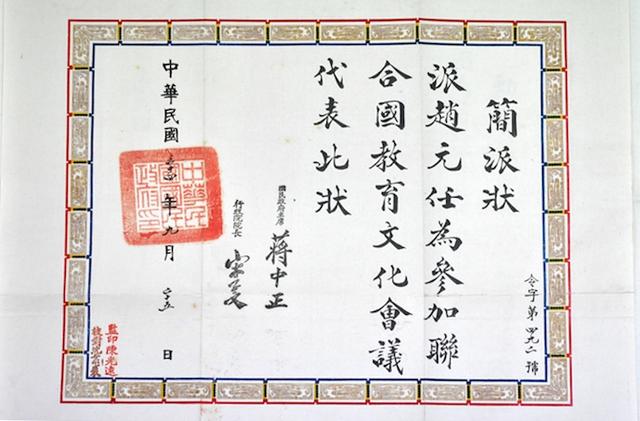 簡派狀
派趙元任為參加聯
合國教育文化會議
代表此狀
令字第四九二號
國民政府主席 蔣中正
行政院院長 宋子文
中華民國 年九月 日
中華民國國民政府印
監印陳光遠